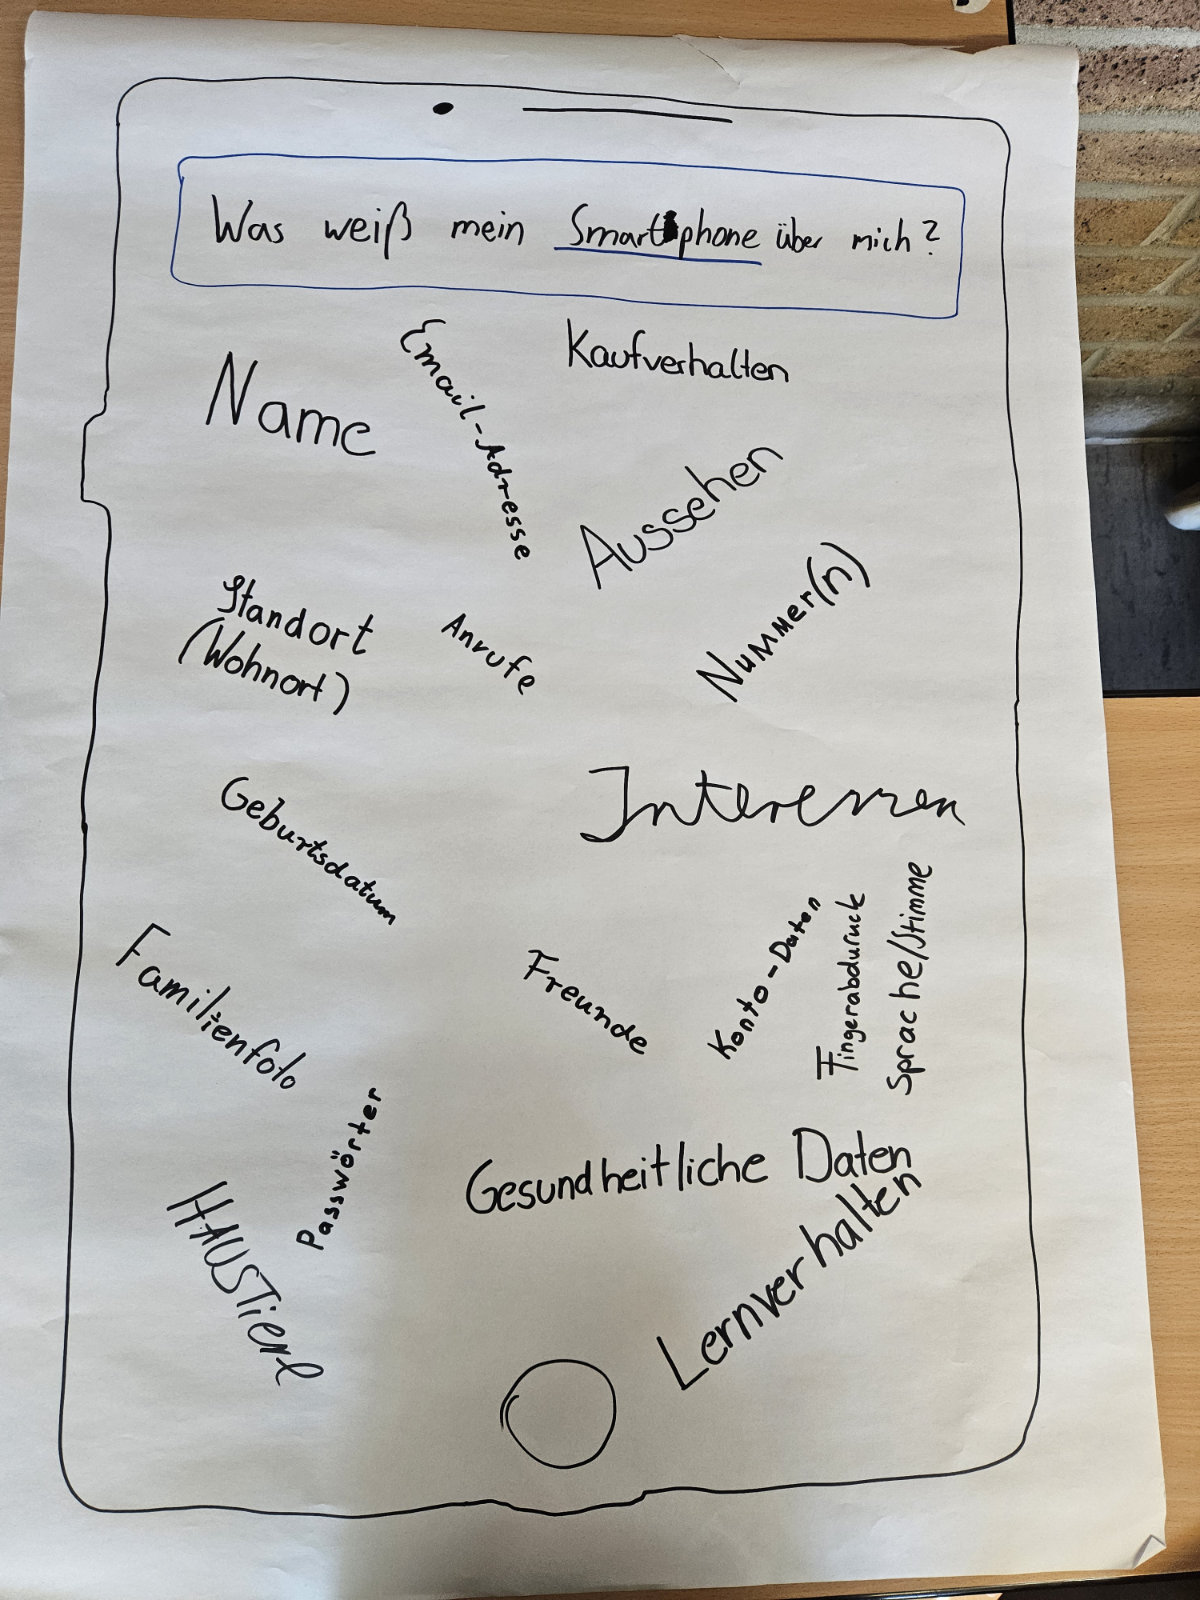 Was weiß mein Smartphone über mich?
Name
Email-Adresse
Kaufverhalten
Aussehen
Standort
(Wohnort)
Anrufe
Nummer(n)
Interessen
Geburtsdatum
Familienfoto
Freunde
Konto-Daten
Fingerabduruck
Sprache/Stimme
Passwörter
Gesundheitliche Daten
HAUSTiere
Lernverhalten